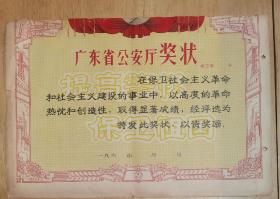 广东省公安厅奖状
在保卫社会主义革命
和社会主义建设的事业中，以高度的革命
热忱和创造性，取得显著成绩，经评选为
特发此奖状，以资奖励。
提高警惕
保卫祖国
一九六 年 月 日